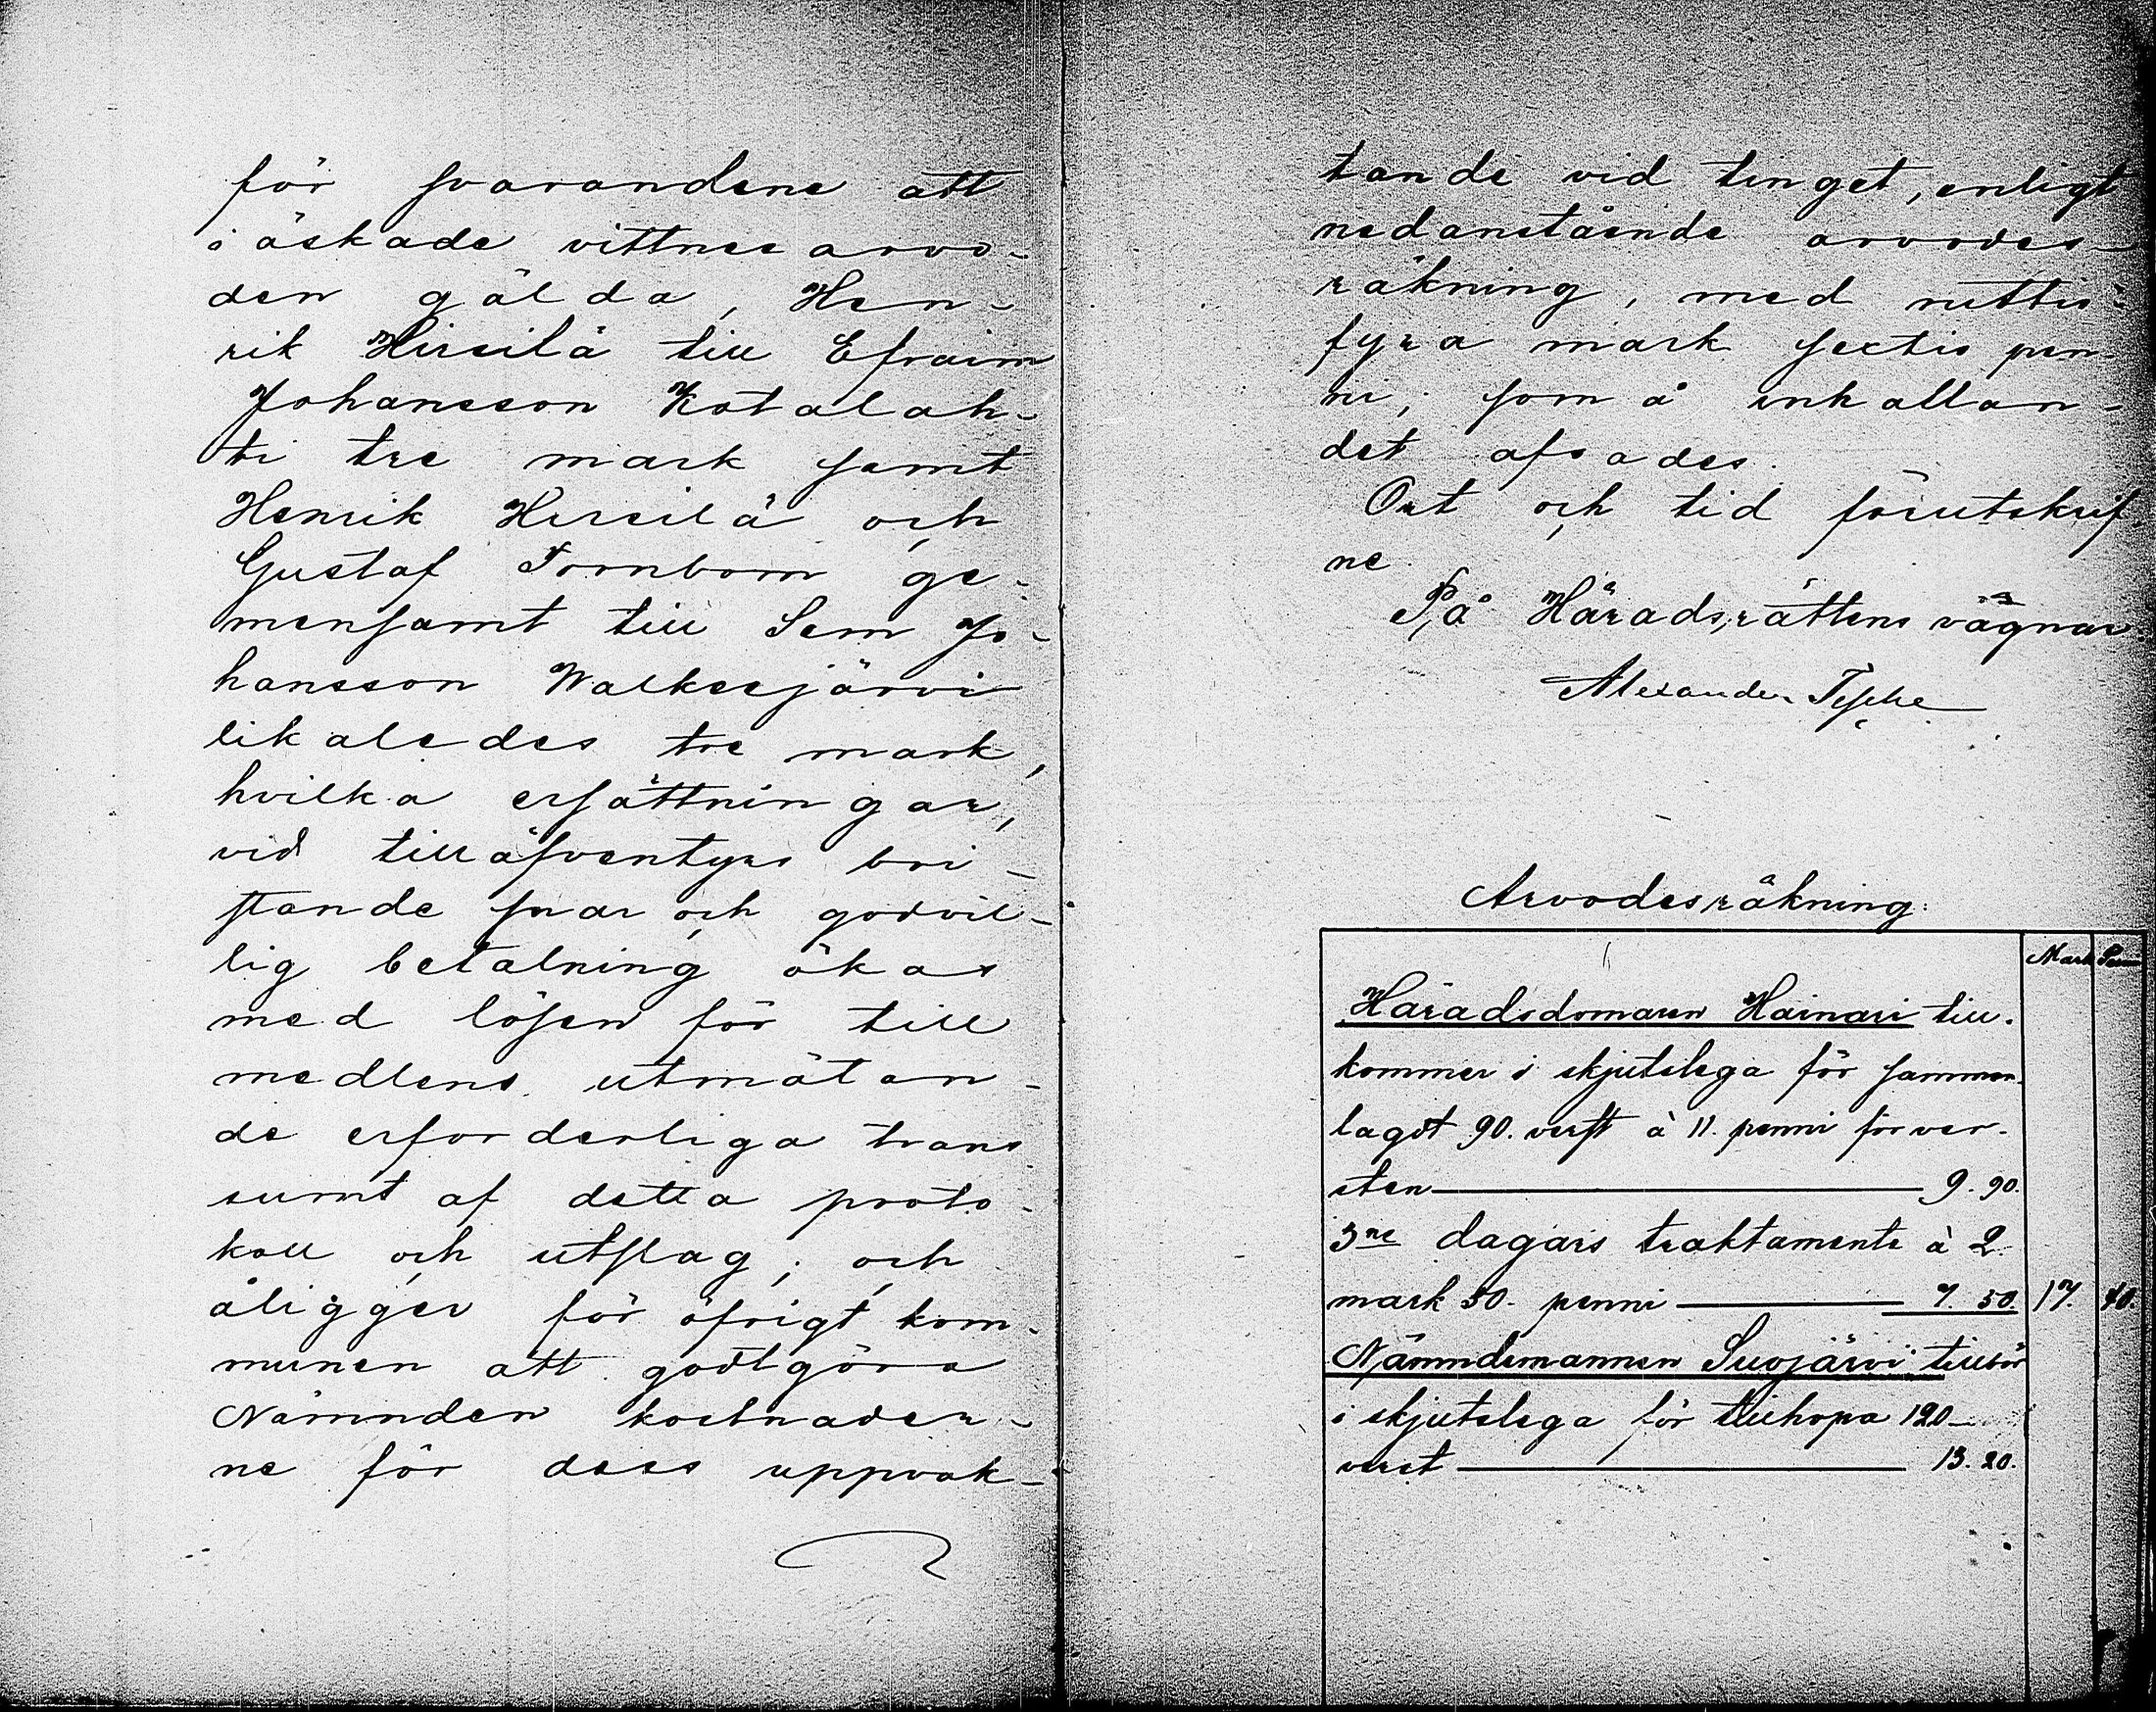 för svarandene att
i äskade vittnesarvo-
den gälda, Hen-
rik Hirsilä till Efraim
Johansson Kotalah-
ti tre mark samt
Henrik Hirsilä och
Gustaf Tornbom ge-
mensamt till Sem Jo-
hansson Walkesjärvi
likaledes tre mark,
hvilka ersättningar,
vid tilläfventyrs bri-
stande snar och godvil-
lig betalning ökas
med lösen för till
medlens utmätan-
de erforderliga trans
sumt af detta proto-
koll och utslag; och
åligger för öfrigt kom-
munen att godtgöra
Nämnden kostnader-
ne för dess uppvak-
tande vid tinget, enligt
nedanstående arvodes-
räkning, med nittio-
fyra mark sextio pen-
ni; som å inkallan-
det afsades.
Ort och tid förutskrif-
ne.
På Häradsrättens vägnar:
Alexander
Arvodesräkning:
Mark Penni
Häradsdomaren Hainari till-
kommer i skjutslega för samman-
lagdt 90. verst à 11. penni för ver-
sten 9. 90.
3ne dagars traktamente à 2
mark 50. penni 7. 50. 17. 40.
Nämndemannen Suojärvi tillkr
i skjutslega för tillhopa 120
verst 13. 20.